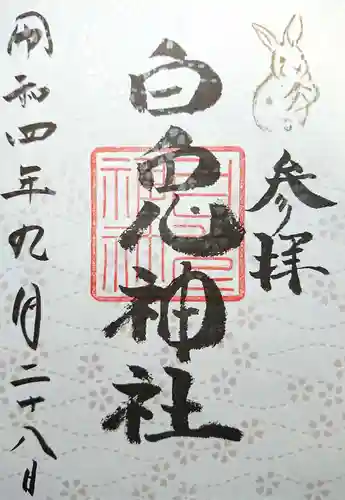 参拝
白兎神社
令和四年九月二十八日